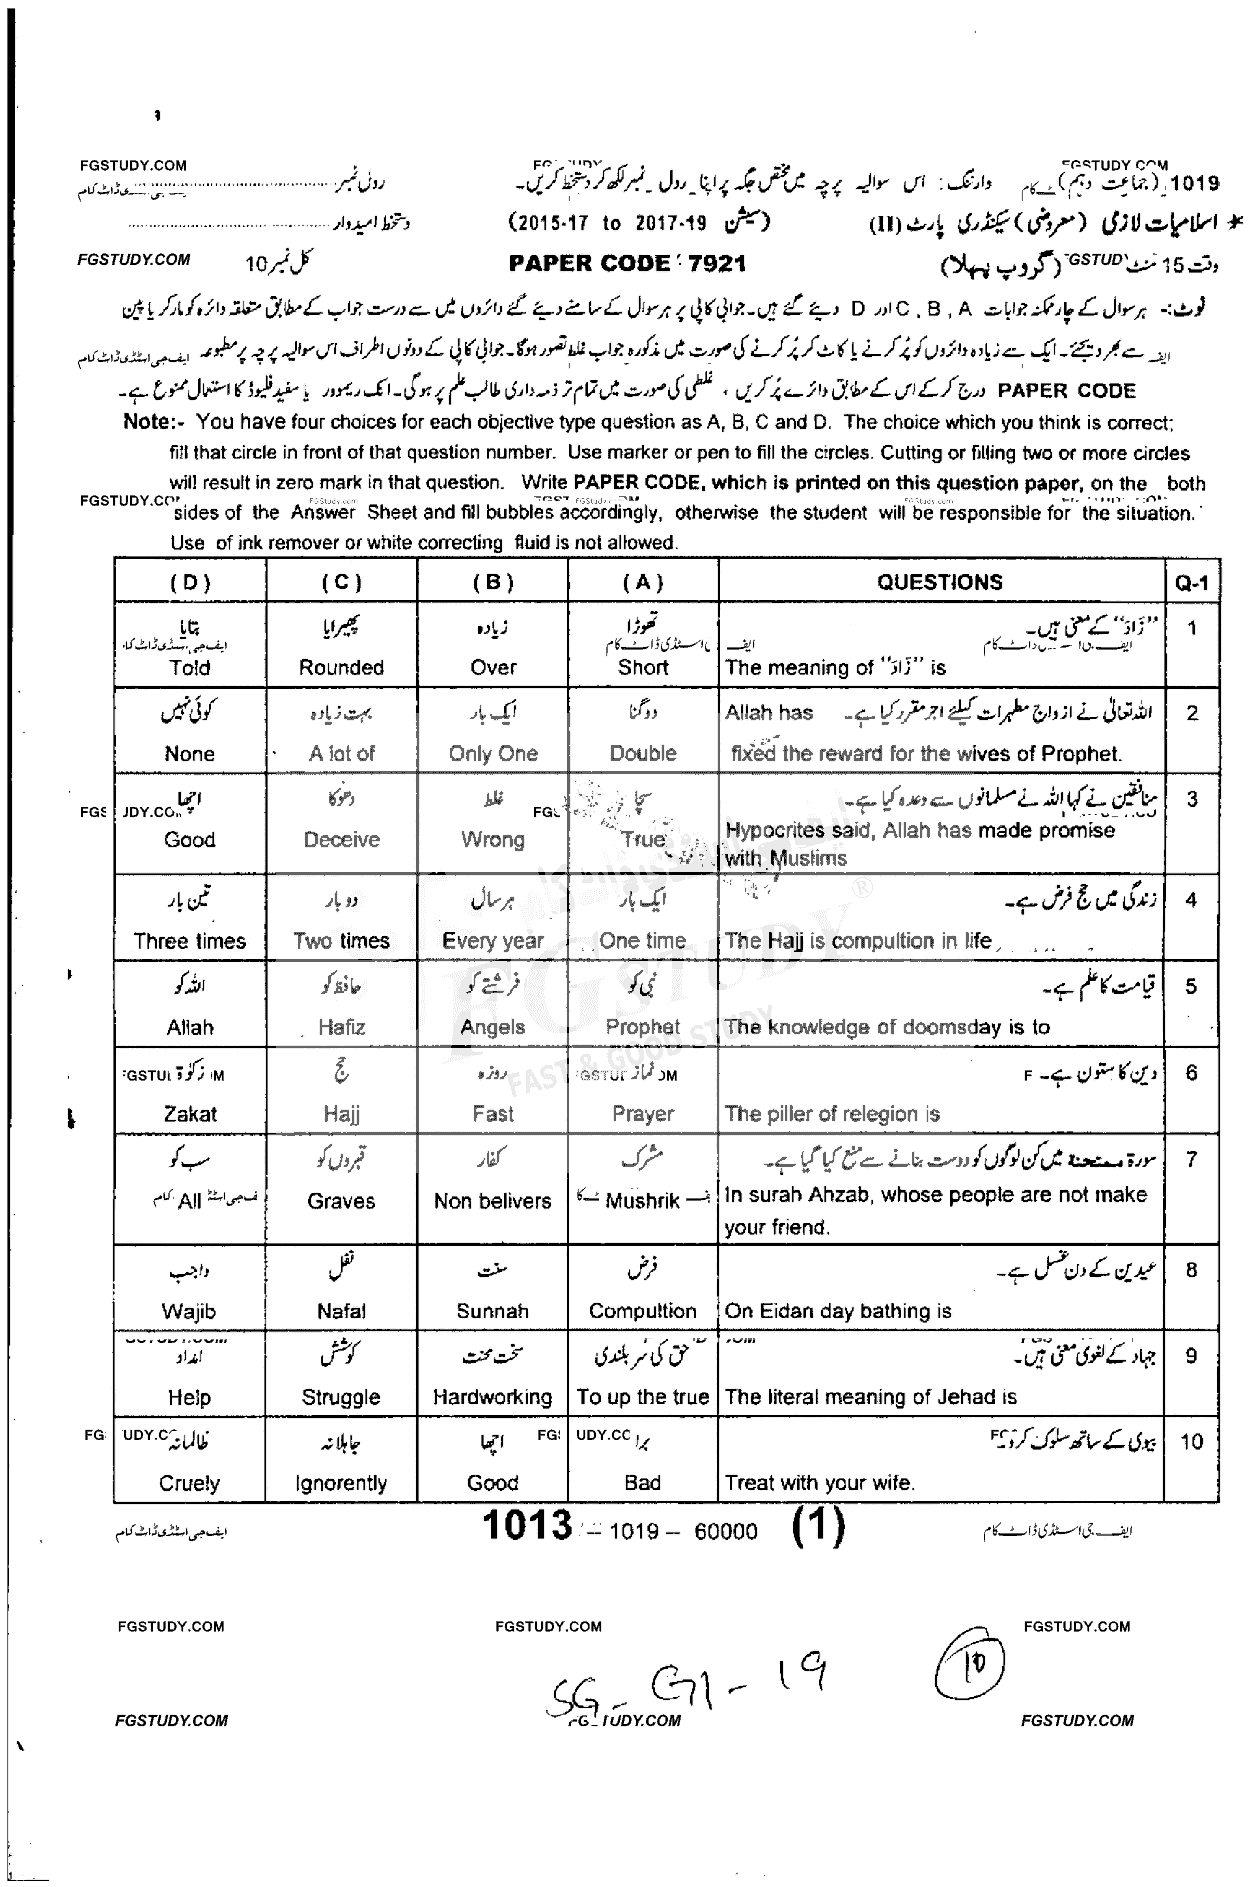 FGSTUDY.COM FGSTUDY.COM
1019 (جماعت دہم) وارننگ: اس سوالیہ پرچہ میں مختص جگہ پر اپنا رول نمبر لکھ کر دستخط کریں۔ رول نمبر
★ اسلامیات لازمی (معروضی) سیکنڈری پارٹ (II) (سیشن 2015-17 to 2017-19) دستخط امیدوار
وقت 15 منٹ (گروپ پہلا) PAPER CODE 7921 کل نمبر 10 FGSTUDY.COM
نوٹ:- ہر سوال کے چار ممکنہ جوابات A ,B ,C اور D دیئے گئے ہیں۔ جوابی کاپی پر ہر سوال کے سامنے دیئے گئے دائروں میں سے درست جواب کے مطابق متعلقہ دائرہ کو مارکر یا پین
سے بھر دیجئے۔ ایک سے زیادہ دائروں کو پُر کرنے یا کاٹ کر پُر کرنے کی صورت میں مذکورہ جواب غلط تصور ہوگا۔ جوابی کاپی کے دونوں اطراف اس سوالیہ پرچہ پر مطبوعہ
PAPER CODE درج کر کے اس کے مطابق دائرے پُر کریں، غلطی کی صورت میں تمام تر ذمہ داری طالب علم پر ہوگی۔ انک ریموور یا سفید فلیوڈ کا استعمال ممنوع ہے۔
Note:- You have four choices for each objective type question as A, B, C and D. The choice which you think is correct;
fill that circle in front of that question number. Use marker or pen to fill the circles. Cutting or filling two or more circles
will result in zero mark in that question. Write PAPER CODE, which is printed on this question paper, on the both
sides of the Answer Sheet and fill bubbles accordingly, otherwise the student will be responsible for the situation.
Use of ink remover or white correcting fluid is not allowed.
(D) (C) (B) (A) QUESTIONS Q-1
بتایا پھیرایا زیادہ تھوڑا "زَادَ" کے معنی ہیں۔ 1
Told Rounded Over Short The meaning of "زَادَ" is
کوئی نہیں بہت زیادہ ایک بار دوگنا Allah has اللہ تعالیٰ نے ازواج مطہرات کیلئے اجر مقرر کیا ہے۔ 2
None A lot of Only One Double fixed the reward for the wives of Prophet.
اچھا دھوکا غلط سچا منافقین نے کہا اللہ نے مسلمانوں سے وعدہ کیا ہے۔ 3
Good Deceive Wrong True Hypocrites said, Allah has made promise
with Muslims
تین بار دو بار ہر سال ایک بار زندگی میں حج فرض ہے۔ 4
Three times Two times Every year One time The Hajj is compultion in life
اللہ کو حافظ کو فرشتے کو نبی کو قیامت کا علم ہے۔ 5
Allah Hafiz Angels Prophet The knowledge of doomsday is to
زکوٰۃ حج روزہ نماز دین کا ستون ہے۔ 6
Zakat Hajj Fast Prayer The piller of relegion is
سب کو قبروں کو کفار مشرک سورۃ ممتحنۃ میں کن لوگوں کو دوست بنانے سے منع کیا گیا ہے۔ 7
All Graves Non belivers Mushrik In surah Ahzab, whose people are not make
your friend.
واجب نفل سنت فرض عیدین کے دن غسل ہے۔ 8
Wajib Nafal Sunnah Compultion On Eidan day bathing is
امداد کوشش سخت محنت حق کی سربلندی جہاد کے لغوی معنی ہیں۔ 9
Help Struggle Hardworking To up the true The literal meaning of Jehad is
ظالمانہ جاہلانہ اچھا برا بیوی کے ساتھ سلوک کرو 10
Cruely Ignorently Good Bad Treat with your wife.
ایف جی اسٹڈی ڈاٹ کام 1013 – 1019 – 60000 (1) ایف جی اسٹڈی ڈاٹ کام
FGSTUDY.COM FGSTUDY.COM FGSTUDY.COM
SG - G1 - 19 10
FGSTUDY.COM FGSTUDY.COM
FGSTUDY
FAST & GOOD STUDY